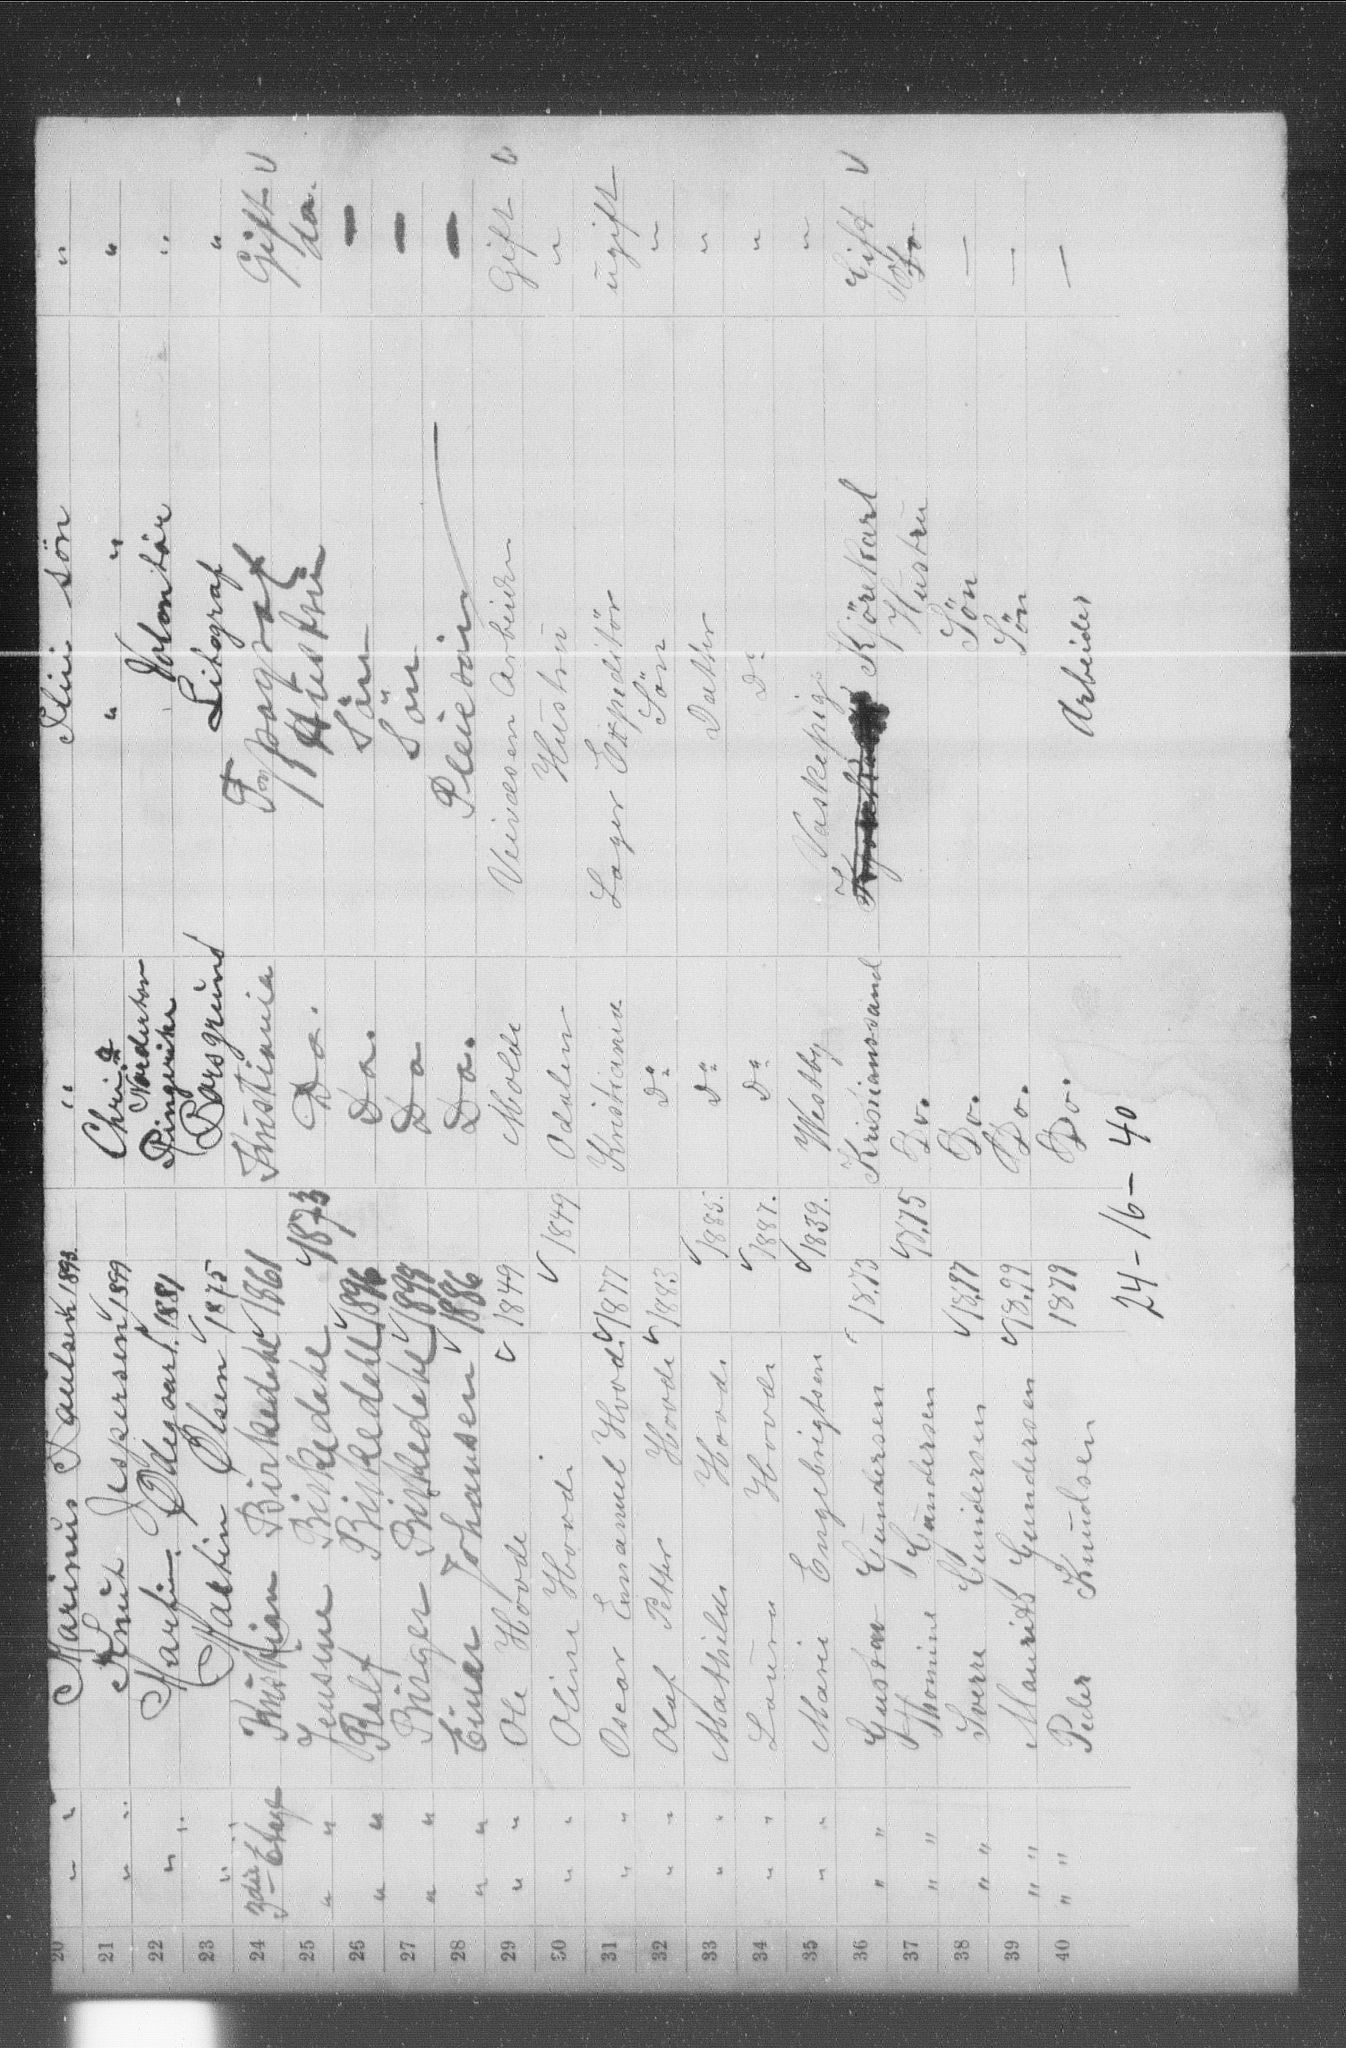 20 " " Marinus Paulsen 1893 " Plii sön "
21 " " Knut Jespersen 1899 Chria " " "
22 " " Martin Ødegaard 1881 Nordethov Ringerike Volontör "
23 " " Martin Olsen 1875 Porsgrund Litograf "
24 3die Etage Kristian Birkedahl 1861 Kristiania Typograf Gift
25 " " Jensine Birkedahl 1873 Do. Hustru do.
26 " " Rolf Birkedahl 1896 Do. Sön —
27 " " Birger Birkedahl 1899 Do Sön —
28 " " Einar Johansen 1886 Do. Pleiesön —
29 " " Ole Hovde 1849 Molde Veivæsen Arbeider Gift
30 " " Oline Hovde 1849 Odalen Hustru "
31 " " Oscar Emanuel Hovde 1877 Kristiania Lager Expeditör ugift
32 " " Olaf Petter Hovde 1883 Do Sön "
33 " " Mathilde Hovde 1885. Do Datter "
34 " " Laura Hovde 1887. Do Do "
35 " " Marie Engebrigtsen 1839. Westby Vaskepige "
36 " " Gustav Gundersen 1873 Kristianssand Kjörekarl Gift
37 " " Thomine Gundersen 1875 Do. Hustru Do
38 " " Sverre Gundersen 1897 Do. Sön —
39 " " Maurits Gundersen 1899 Do. Sön —
40 " " Peder Knudsen 1879 Do. Arbeider —
24 - 16 - 40